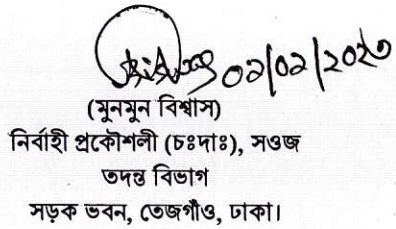 ০২/০২/২০২৩
(মুনমুন বিশ্বাস)
নির্বাহী প্রকৌশলী (চঃদাঃ), সওজ
তদন্ত বিভাগ
সড়ক ভবন, তেজগাঁও, ঢাকা।